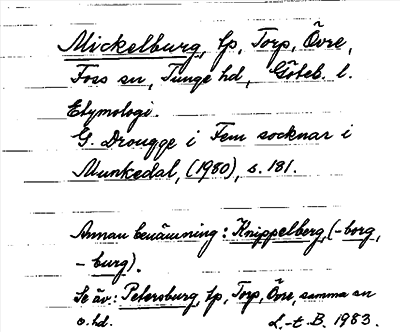 Mickelburg, lp, Torp, Övre,
Foss sn, Tunge hd, Göteb. l.
Etymologi.
G. Drougge i Fem socknar i
Munkedal, (1980), s. 181.
Annan benämning: Knippelberg, (-borg,
-burg).
Se äv.: Petersburg, lp, Torp, Övre, samma sn
o. hd. L.-t B. 1983.